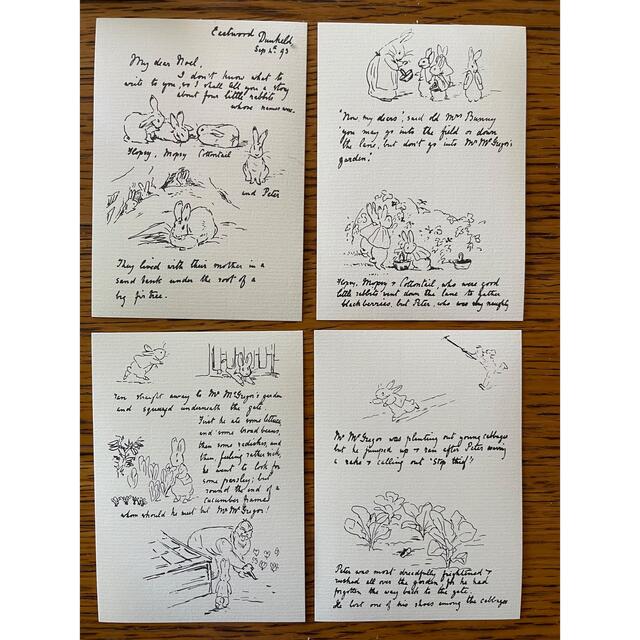 Eastwood
Dunkeld
Sep 4th 93
My dear Noel,
I don't know what to
write to you, so I shall tell you a story
about four little rabbits
whose names were -
Flopsy, Mopsy Cottontail
and Peter
They lived with their mother in a
sand bank under the root of a
big fir tree.
'Now, my dears', said old Mrs Bunny
'you may go into the field or down
the lane, but don't go into Mr McGregor's
garden.'
Flopsy, Mopsy & Cottontail, who were good
little rabbits went down the lane to gather
blackberries, but Peter, who was very naughty
ran straight away to Mr McGregor's garden
and squeezed underneath the gate.
First he ate some lettuces,
and some broad beans,
then some radishes, and
then, feeling rather sick,
he went to look for
some parsley; but
round the end of a
cucumber frame
whom should he meet but Mr McGregor!
Mr McGregor was planting out young cabbages
but he jumped up & ran after Peter waving
a rake & calling out 'Stop thief'!
Peter was most dreadfully frightened &
rushed all over the garden, for he had
forgotten the way back to the gate.
He lost one of his shoes among the cabbages